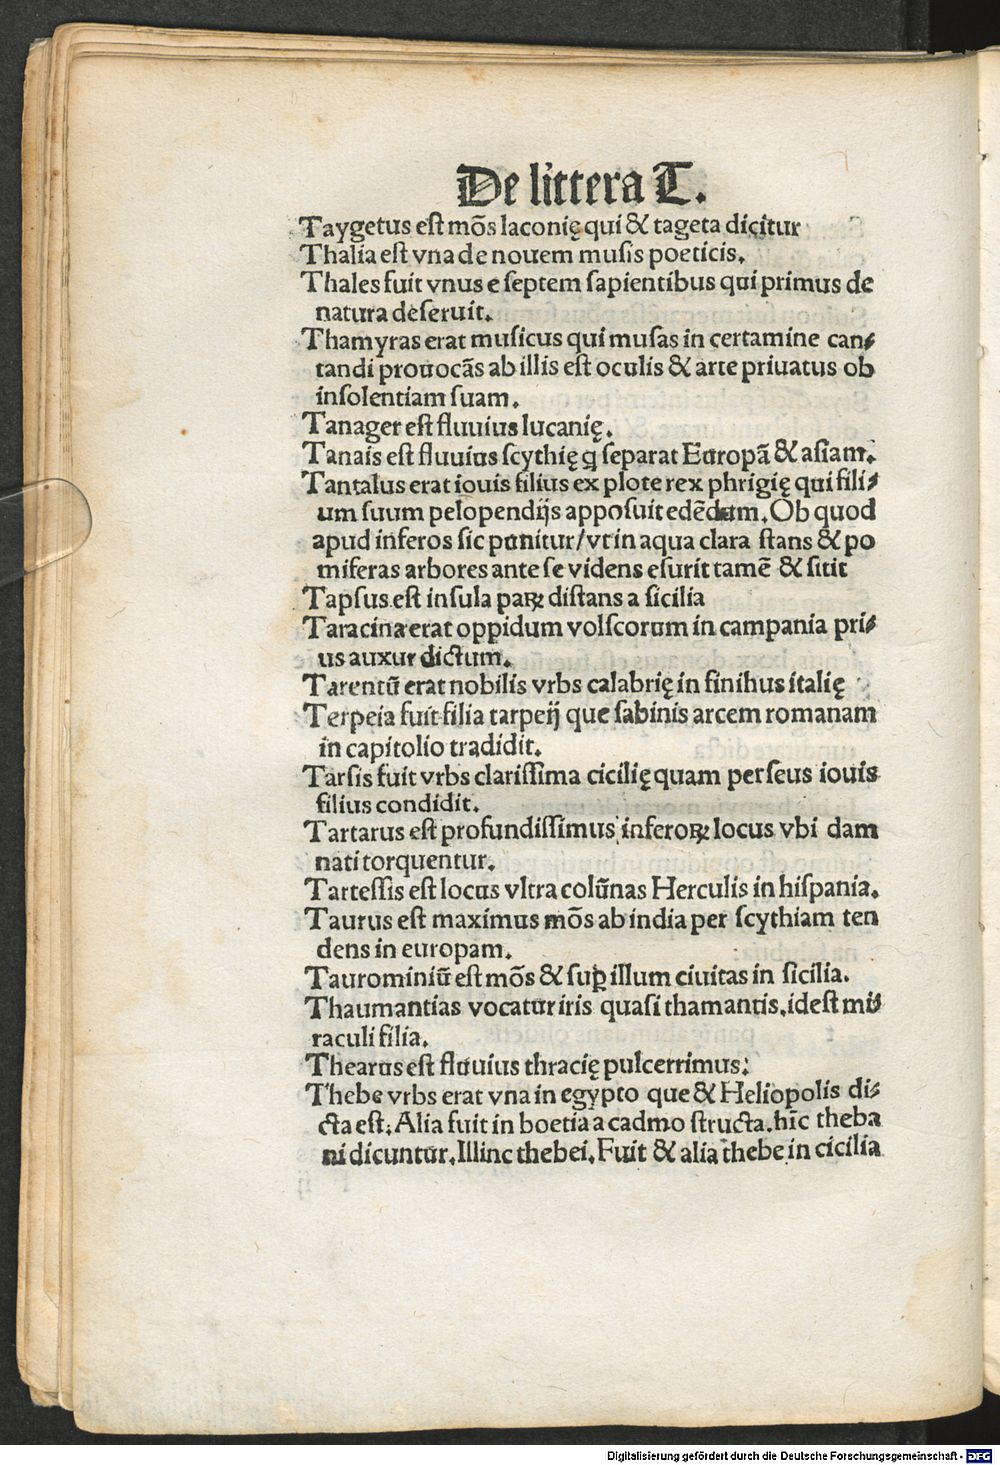 De littera T.
Taygetus est mõs laconię qui & tageta dicitur
Thalia est vna de nouem musis poeticis.
Thales fuit vnus e septem sapientibus qui primus de
natura deseruit.
Thamyras erat musicus qui musas in certamine can⸗
tandi prouocãs ab illis est oculis & arte priuatus ob
insolentiam suam.
Tanager est fluuius lucanię.
Tanais est fluuius scythię ꝗ separat Europã & asiam.
Tantalus erat iouis filius ex plote rex phrigię qui fili⸗
um suum pelopendijs apposuit edẽdum. Ob quod
apud inferos sic punitur/vt in aqua clara stans & po
miferas arbores ante se videns esurit tamẽ & sitit
Tapsus est insula paꝝ distans a sicilia
Taracina erat oppidum volscorum in campania pri⸗
us auxur dictum.
Tarentũ erat nobilis vrbs calabrię in finihus italię
Terpeia fuit filia tarpeij que sabinis arcem romanam
in capitolio tradidit.
Tarsis fuit vrbs clarissima cicilię quam perseus iouis
filius condidit.
Tartarus est profundissimus inferoꝝ locus vbi dam
nati torquentur.
Tartessis est locus vltra colũnas Herculis in hispania.
Taurus est maximus mõs ab india per scythiam ten
dens in europam.
Taurominiũ est mõs & suꝑ illum ciuitas in sicilia.
Thaumantias vocatur iris quasi thamantis. idest mi⸗
raculi filia.
Thearus est fluuius thracię pulcerrimus:
Thebe vrbs erat vna in egypto que & Heliopolis di⸗
cta est. Alia fuit in boetia a cadmo structa. hĩc theba
ni dicuntur. Illinc thebei. Fuit & alia thebe in cicilia
Digitalisierung gefördert durch die Deutsche Forschungsgemeinschaft - DFG